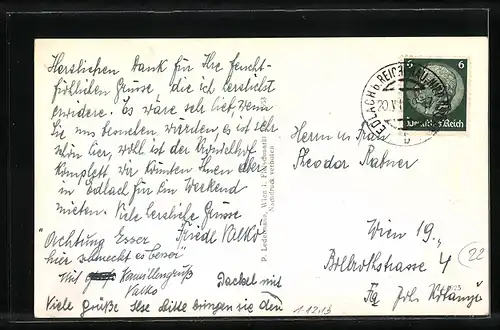 Herzlichen Dank für Ihre feucht-
fröhlichen Grüsse, die ich herzlichst
erwidere. Es wäre sehr lieb, wenn
Sie uns besuchen würden, es ist sehr
schön hier, wohl ist der
komplett wir könnten Ihnen aber
in Edlach für ein Weekend
mieten. Viele herzliche Grüsse
Friedl
"Achtung Esser
hier schmeckt es besser"
Mit Kamillengruß
Dackel mit
Viele Grüße Ilse bitte bringen sie den
P. Ledermann, Wien I. Fleischmarkt
Nachdruck verboten
EDLACH b. REICHENAU
20.
6 6
Deutsches Reich
Herrn u. Frau
Theodor Ratner
Wien 19.,
4
22